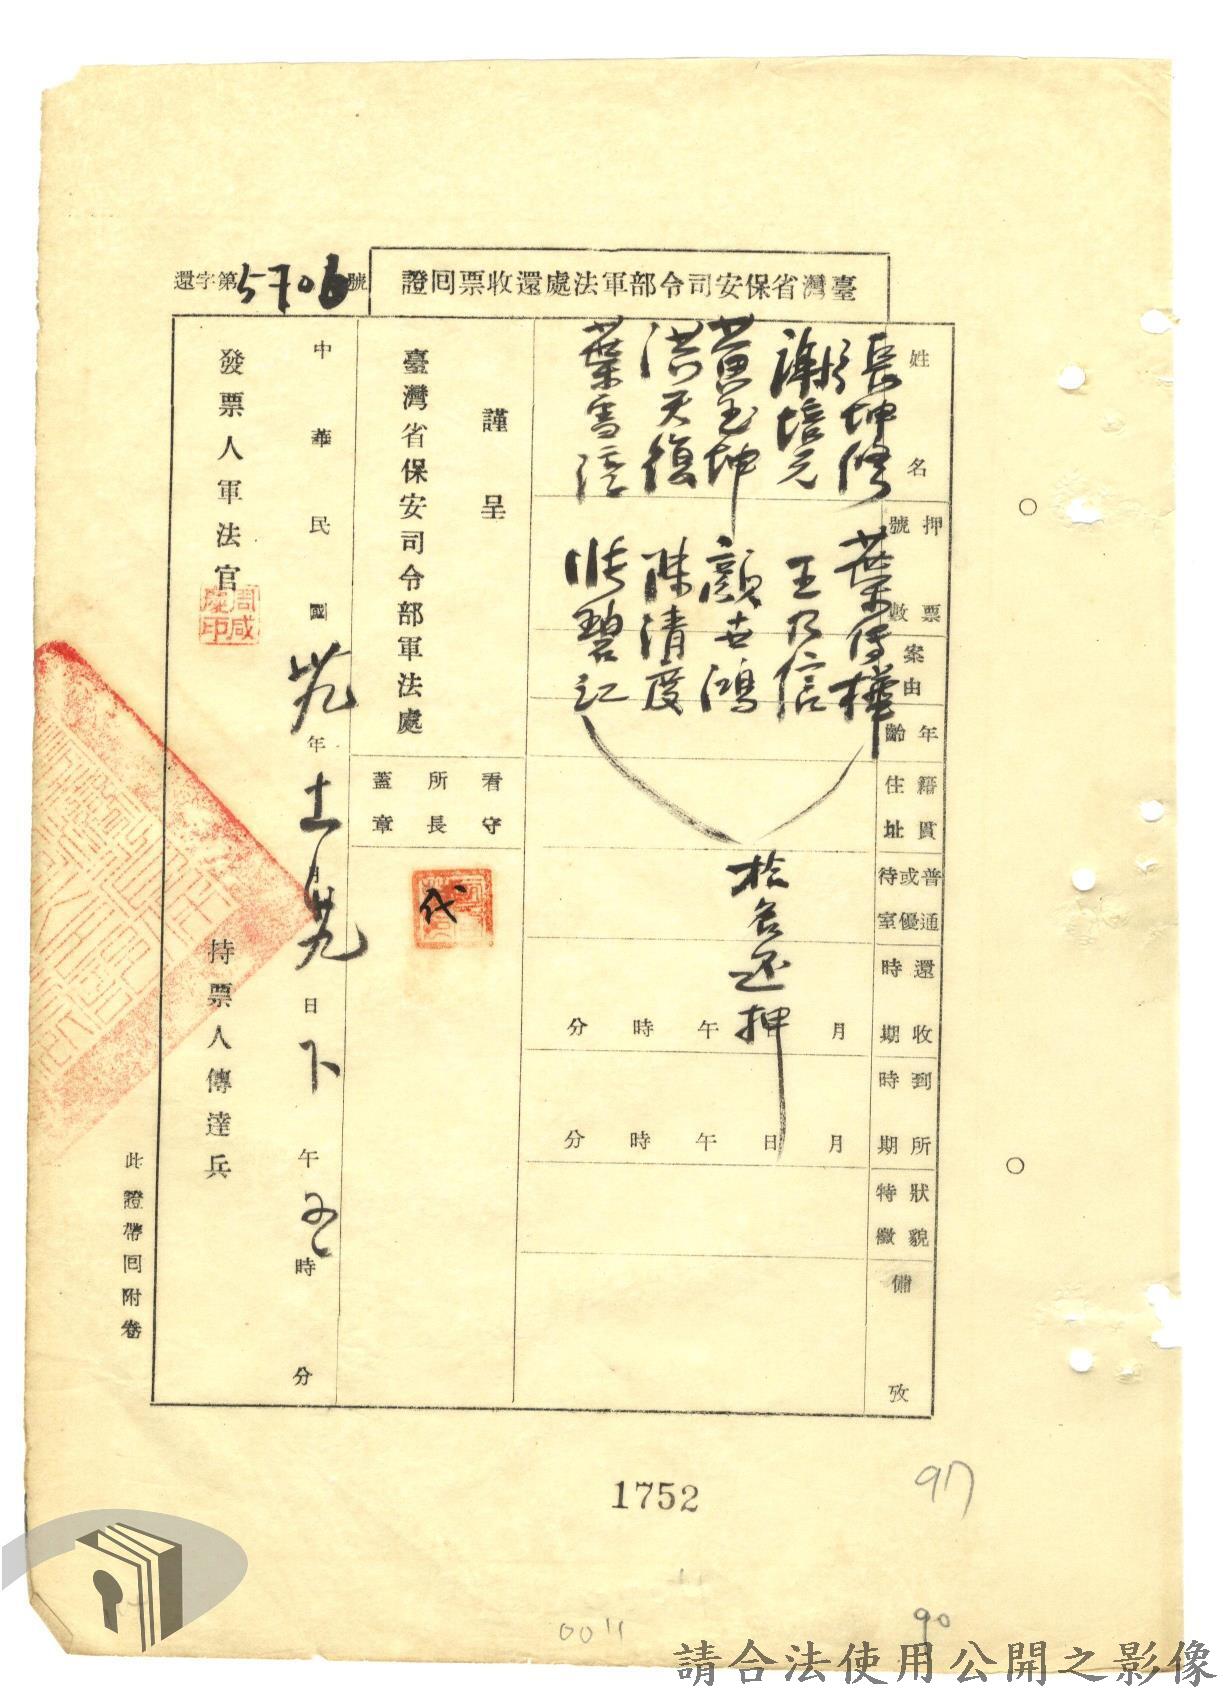 臺灣省保安司令部軍法處還收票回證
還字第5706號
姓名
押票號數
案由
年齡
籍貫住址
普通或優待室
還收時期
到所時期
狀貌特徵
備攷
張坤修
謝培元
黃玉坤
洪天復
葉雪淳
葉傳樺
王乃信
顏世鴻
陳清度
張碧江
拾名還押
月 午 時 分
月 日 午 時 分
謹呈
臺灣省保安司令部軍法處
看守所長蓋章
代
中華民國卅九年十一月廿九日下午五時 分
發票人軍法官
周咸慶印
持票人傳達兵
此證帶回附卷
1752
97
90
0011
請合法使用公開之影像